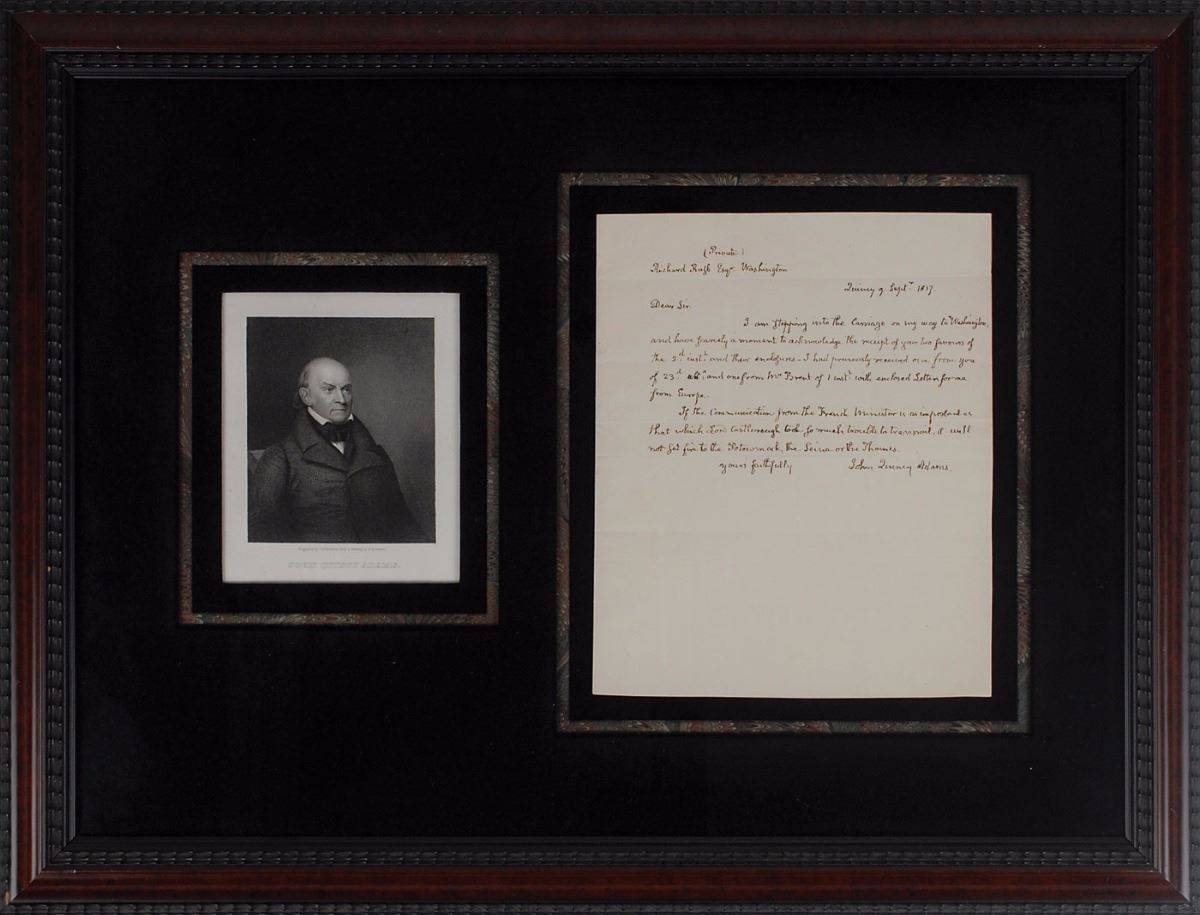 (Private)
Richard Rush Esqr. Washington
Quincy 9 Septr. 1817.
Dear Sir.
I am stepping into the Carriage on my way to Washington,
and have scarcely a moment to acknowledge the receipt of your two favours of
the 2d. inst. and their enclosures – I had previously received one from you
of 23d. ulto. and one from Mr Brent of 1. inst. with enclosed Letters for me
from Europe.
If the Communication from the French Minister is as important as
that which Lord Castlereagh took so much trouble to transmit, it will
not set fire to the Potowmack, the Seine or the Thames.
yours faithfully
John Quincy Adams.
JOHN QUINCY ADAMS.